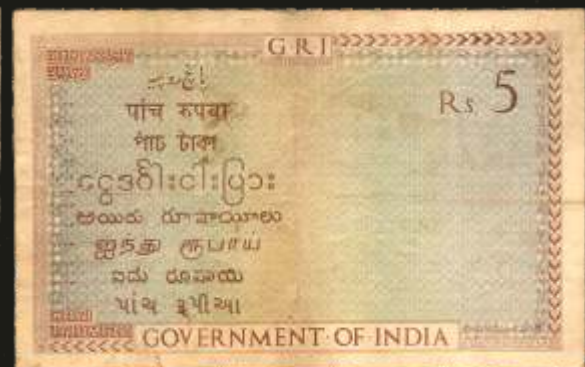 G R I
Rs. 5
پانچ روپیہ
पांच रुपया
পাঁচ টাকা
ငွေဒင်္ဂါးငါးပြား
అయిదు రూపాయలు
ஐந்து ரூபாய்
ಐದು ರೂಪಾಯಿ
પાંચ રૂપીઆ
GOVERNMENT·OF·INDIA